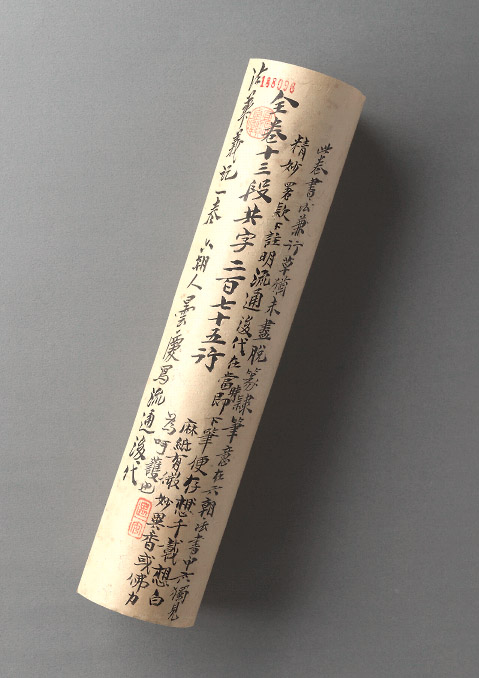 188096
此卷書法兼行草猶未盡脫篆隸筆意在六朝法書中亦獨見
精妙署款下註明流通後代在當時即下筆便存想千載想白
麻紙有微妙異香或佛力
為呵護也
全卷十三段共字二百七十五行
法華義記一卷 六朝人曇慶寫流通後代